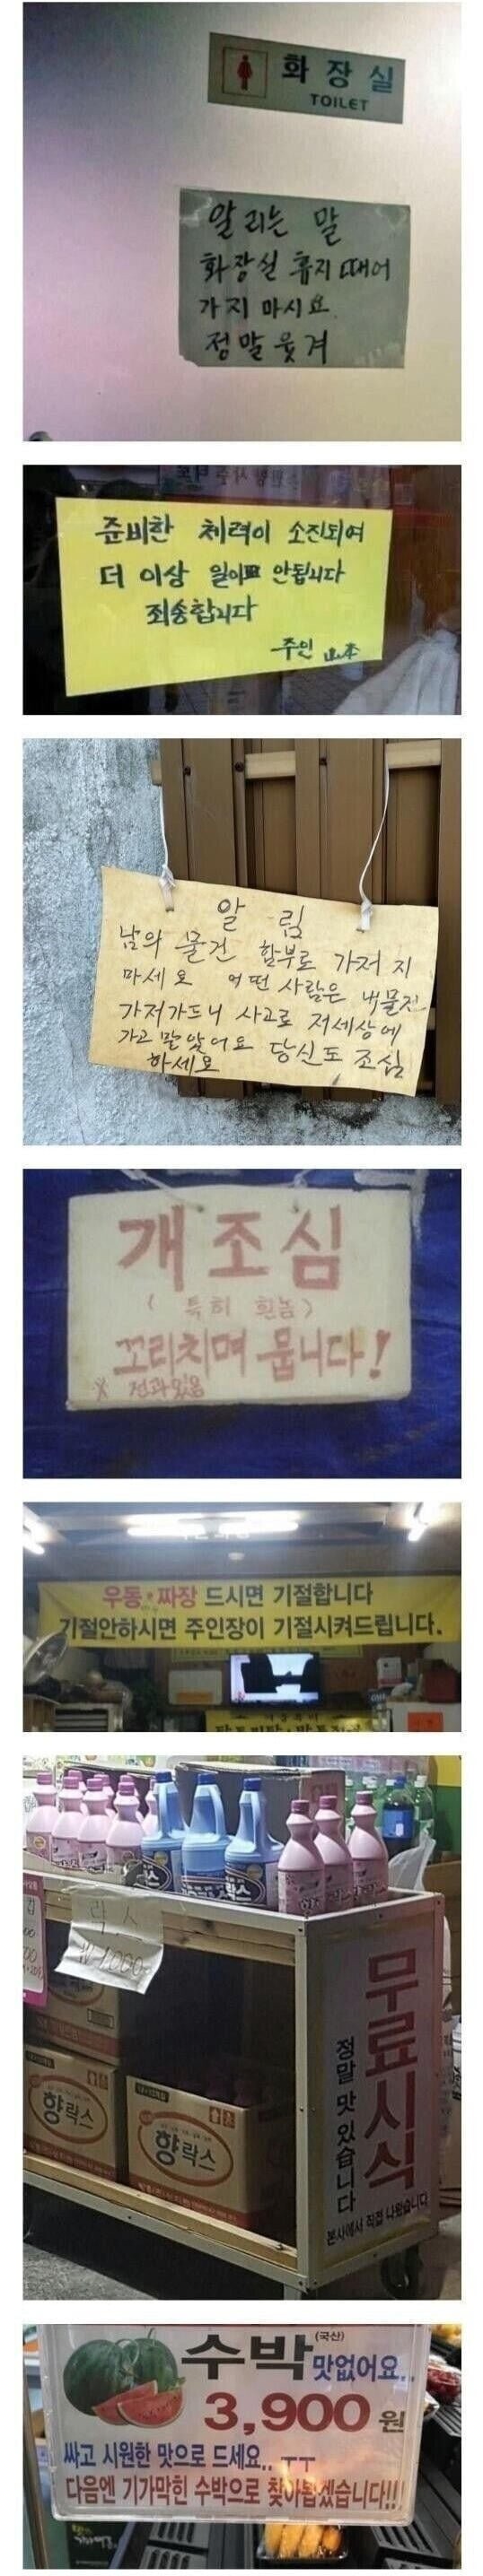 화장실
TOILET
알리는 말
화장실 휴지 떼어
가지 마시요.
정말 웃겨
준비한 체력이 소진되여
더 이상 일이 안됩니다
죄송합니다
주인 山本
알 림
남의 물건 함부로 가저 지
마세요 어떤 사람은 내물건
가저가드니 사고로 저세상에
가고 말았어요 당신도 조심
하세요
개조심
( 특히 흰놈 )
꼬리치며 뭅니다!
※ 전과있음
우동·짜장 드시면 기절합니다
기절안하시면 주인장이 기절시켜드립니다.
락스
₩1,000
향락스
향락스
무료시식
정말 맛있습니다
본사에서 직접 나왔습니다
수박 (국산) 맛없어요..
3,900원
싸고 시원한 맛으로 드세요.. ㅜㅜ
다음엔 기가막힌 수박으로 찾아뵙겠습니다!!